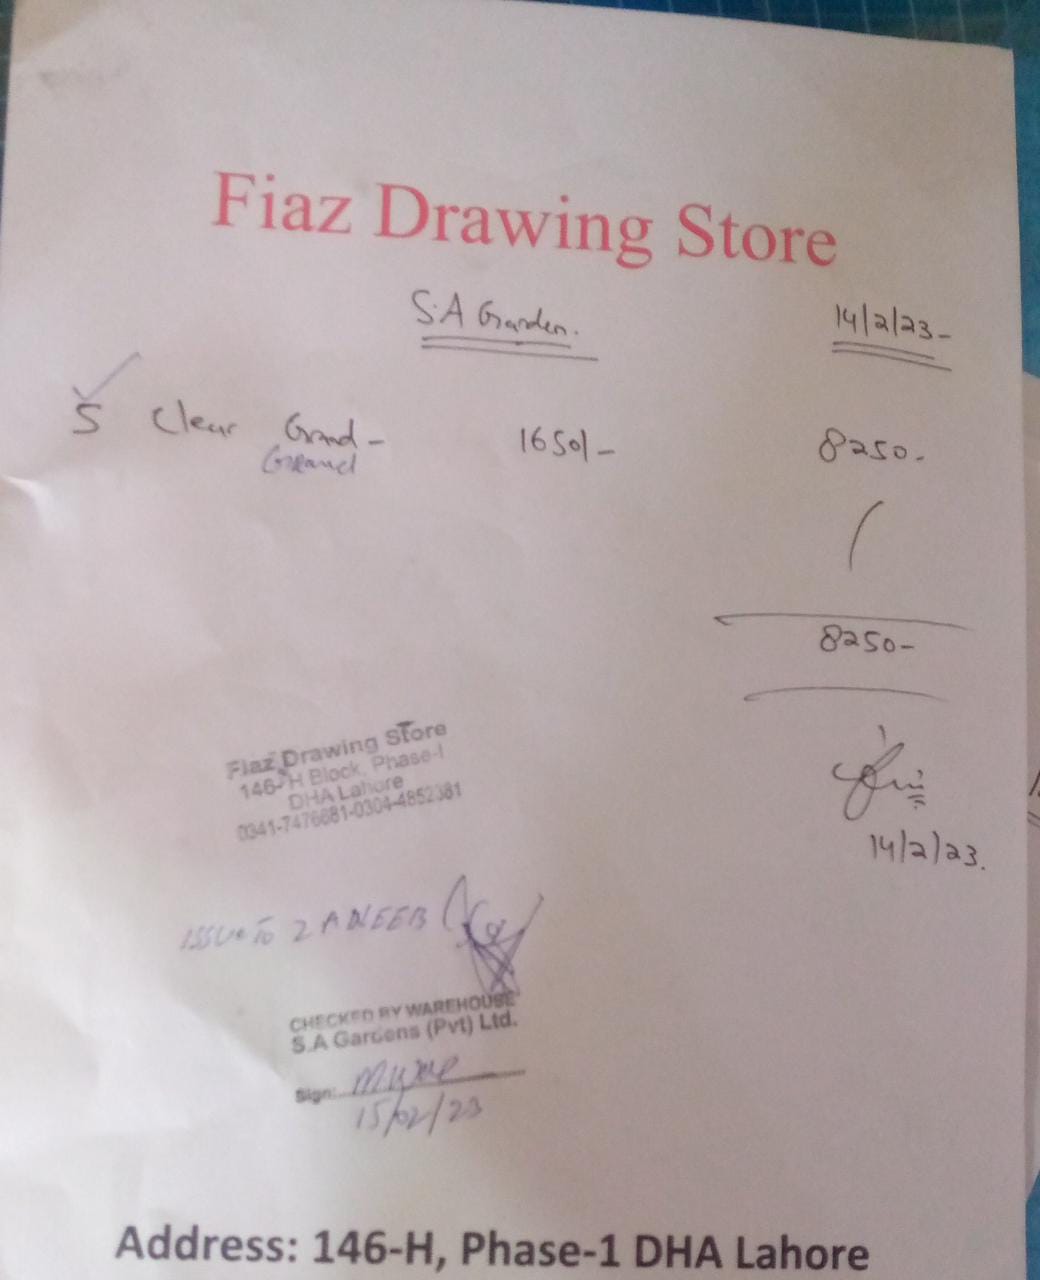 Fiaz Drawing Store
S.A Garden. 14/2/23-
5 Clear Grand- 1650/- 8250-
Grand
8250-
14/2/23.
Fiaz Drawing Store
146-H Block, Phase-I
DHA Lahore
0341-7476681-0304-4852381
ISSUE TO ZANEEB
CHECKED BY WAREHOUSE
S.A Gardens (Pvt) Ltd.
Sign:
15/02/23
Address: 146-H, Phase-1 DHA Lahore